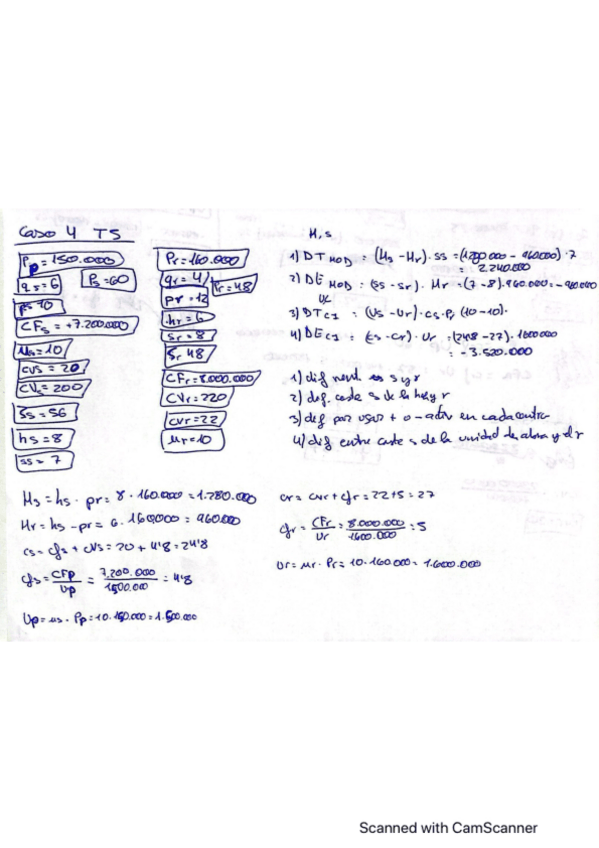 Caso 4 TS
Pp = 150.000
qs = 6
Ps = 60
ps = 10
CFs = 7.200.000
us = 10
cvs = 20
CVs = 200
Ss = 56
hs = 8
ss = 7
Pr = 160.000
qr = 4
Pr = 48
pr = 12
hr = 6
sr = 8
Sr 48
CFr = 8.000.000
CVr = 220
cvr = 22
ur = 10
H, s
1) DT MOD = (Hs - Hr) · ss = (1280000 - 960000) · 7
= 2.240.000
2) DE MOD = (ss - sr) · Hr = (7 - 8) · 960.000 = -960000
UC
3) DTCI = (Us - Ur) · cs · Pr (10-10) ·
4) DECI = (cs - cr) · Ur = (24'8 - 27) · 1600000
= -3.520.000
1) dif s y r
2) def. coste s de la h y r
3) def por usar + o - activ en cada centro
4) dif entre coste s de la unidad de obra y el r
Hs = hs · pr = 8 · 160.000 = 1.280.000
Hr = hs - pr = 6 · 160,000 = 960.000
cs = cfs + cvs = 20 + 4'8 = 24'8
cfs = CFp / Up = 7.200.000 / 1500.000 = 4'8
Up = us · Pp = 10 · 150.000 = 1.500.000
cr = cvr + cfr = 22 + 5 = 27
cfr = CFr / Ur = 8.000.000 / 1600.000 = 5
Ur = ur · Pr = 10 · 160.000 = 1.600.000
Scanned with CamScanner